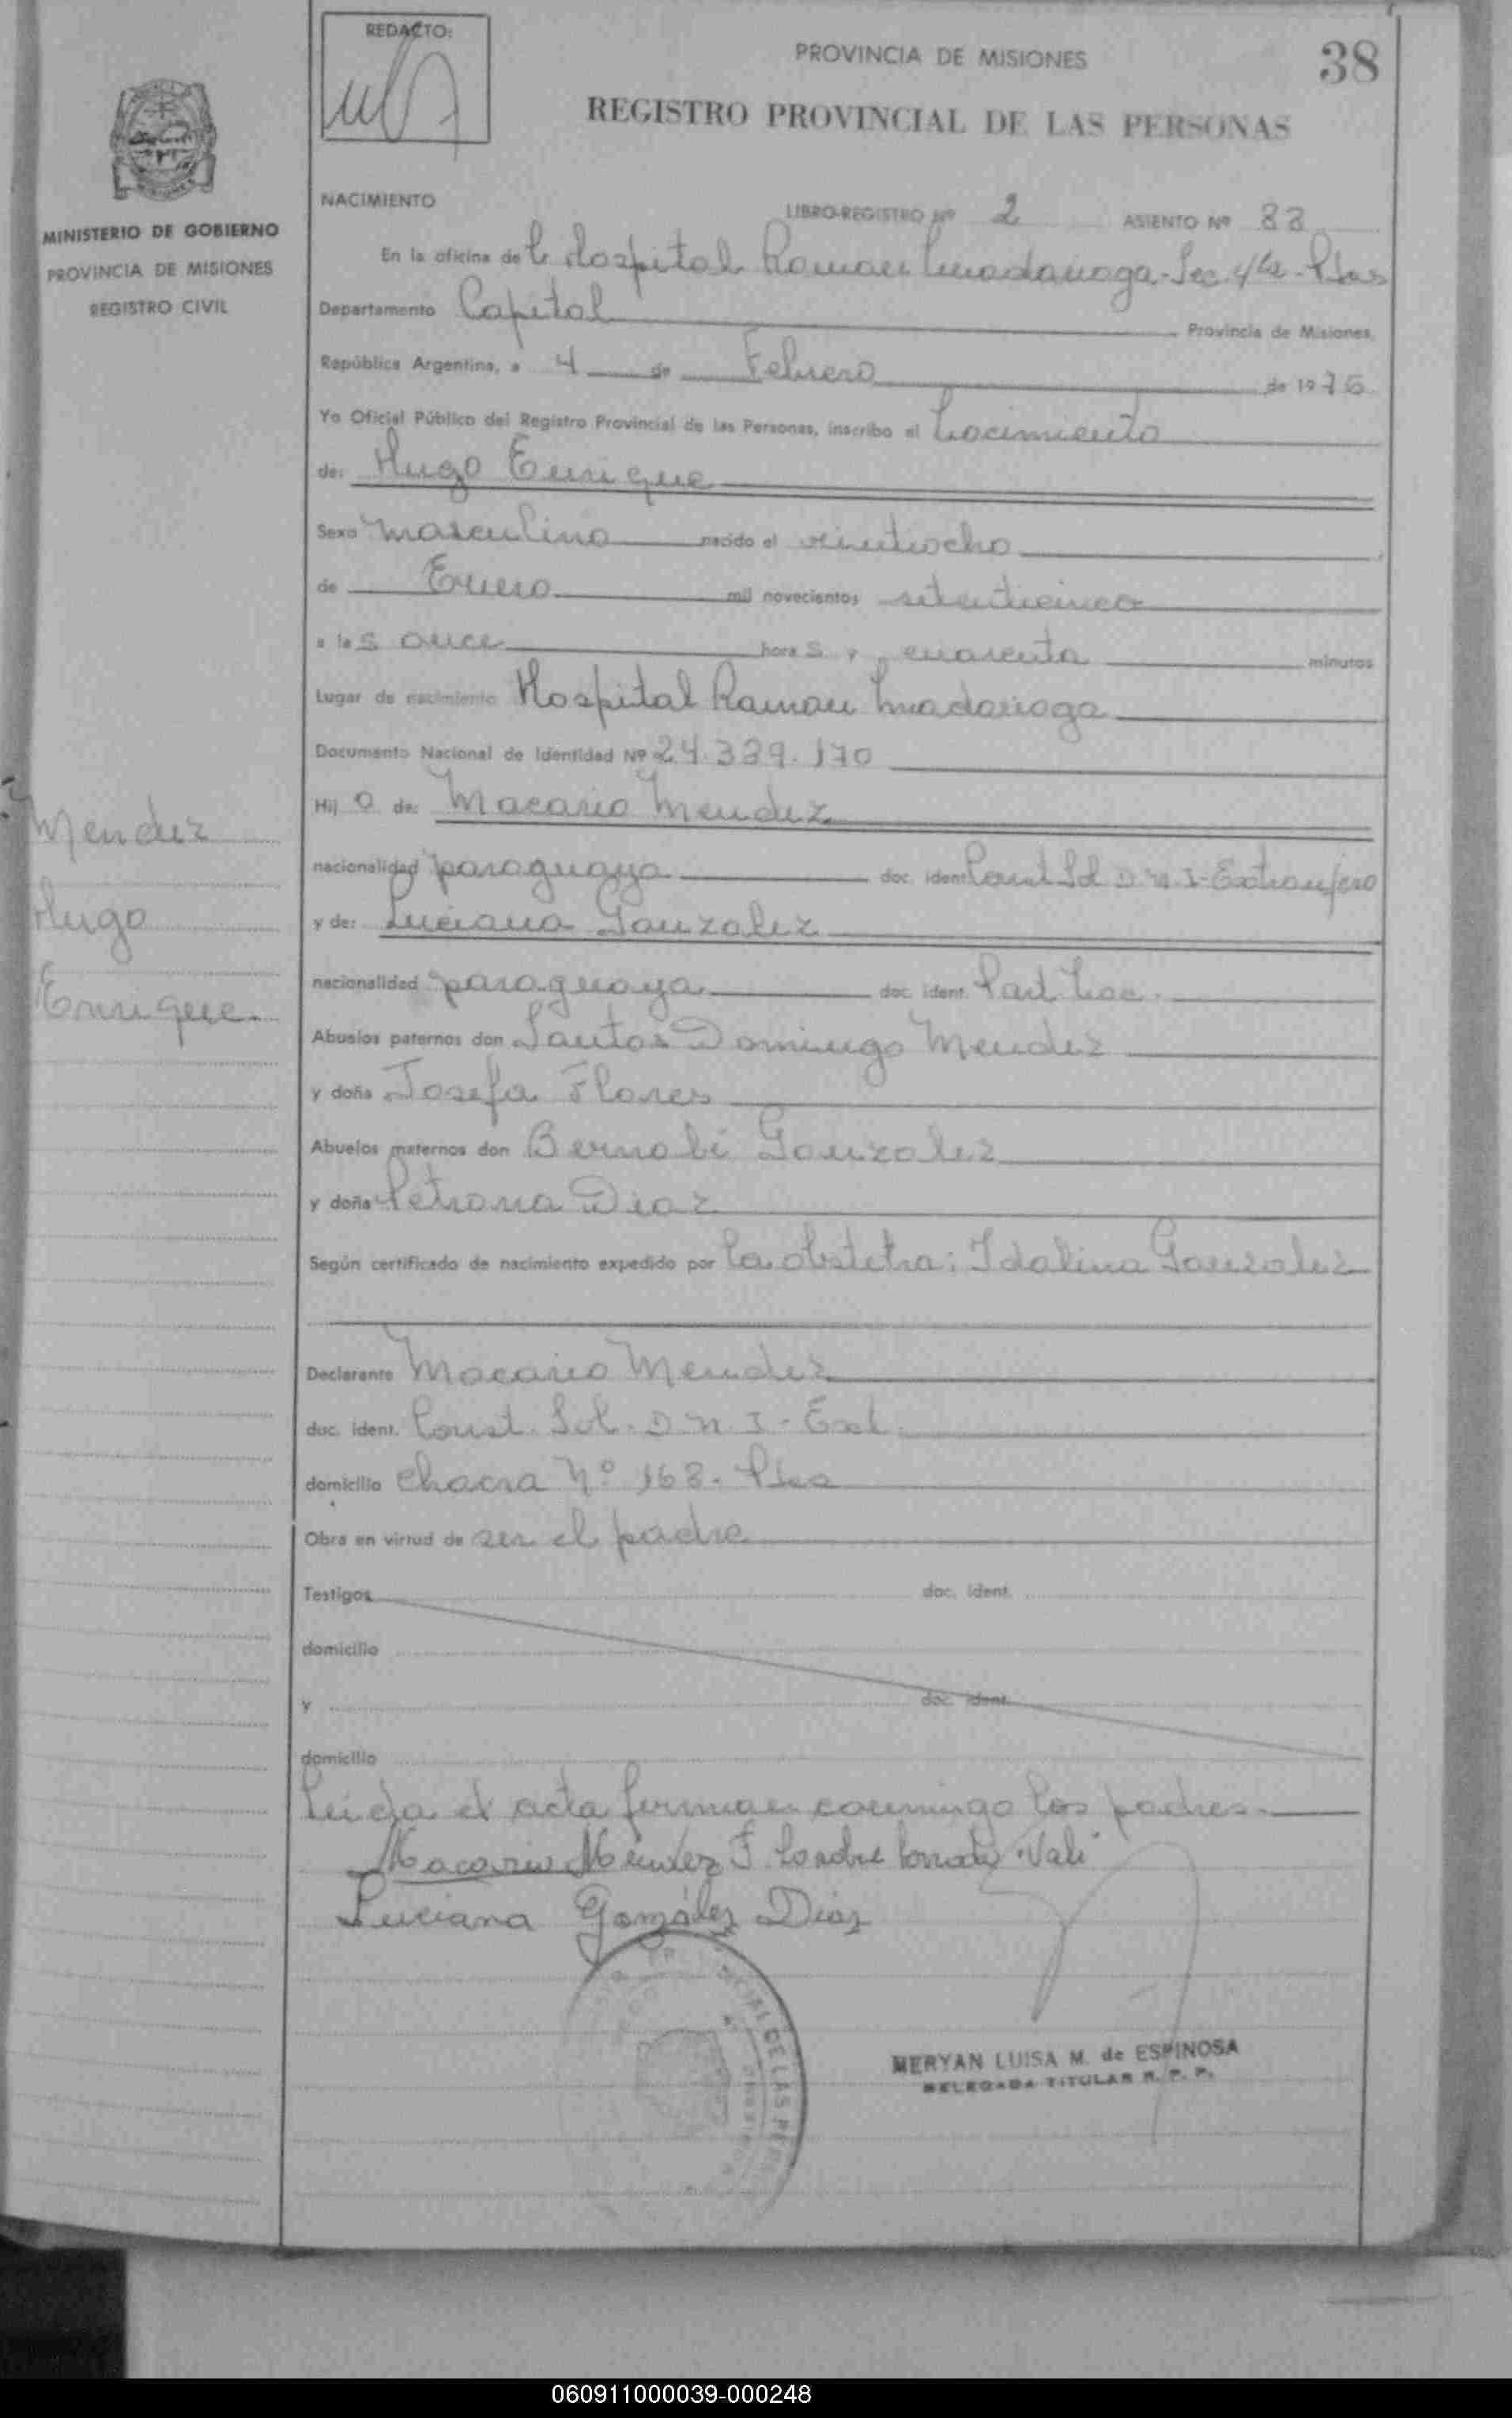 REDACTO:
PROVINCIA DE MISIONES
38
REGISTRO PROVINCIAL DE LAS PERSONAS
MINISTERIO DE GOBIERNO
PROVINCIA DE MISIONES
REGISTRO CIVIL
NACIMIENTO LIBRO-REGISTRO Nº 2 ASIENTO Nº
En la oficina de Hospital Ramon Madariaga - Sec. 4ta - Pdas
Departamento Capital Provincia de Misiones,
República Argentina, a 4 de Febrero de 19
Yo Oficial Público del Registro Provincial de las Personas, inscribo el Nacimiento
de: Hugo Enrique
Sexo masculino nacido el veintiocho
de Enero mil novecientos setenticinco
a las once horas y cuarenta minutos
Lugar de nacimiento Hospital Ramon Madariaga
Documento Nacional de Identidad Nº 24.339.170
Hijo de: Macario Mendez
nacionalidad paraguaya doc. ident. Const Sol D.N.I-Extranjero
y de: Luciana Gonzalez
nacionalidad paraguaya doc. ident. Part Nac.
Abuelos paternos don Santos Domingo Mendez
y doña Josefa Flores
Abuelos maternos don Bernabé Gonzalez
y doña Petrona Diaz
Según certificado de nacimiento expedido por la obstetra: Idalina Gonzalez
Declarante Macario Mendez
doc. ident. Const. Sol. D.N.I. - Ext.
domicilio chacra Nº 168. Pdas
Obra en virtud de ser el padre
Testigos doc. ident.
domicilio
y doc. ident.
domicilio
Leida el acta firman conmigo los padres.
Macario Méndez F.
Luciana González Díaz
Mendez
Hugo
Enrique.
DE LAS
MERYAN LUISA M. de ESPINOSA
DELEGADA TITULAR R. P. P.
060911000039-000248